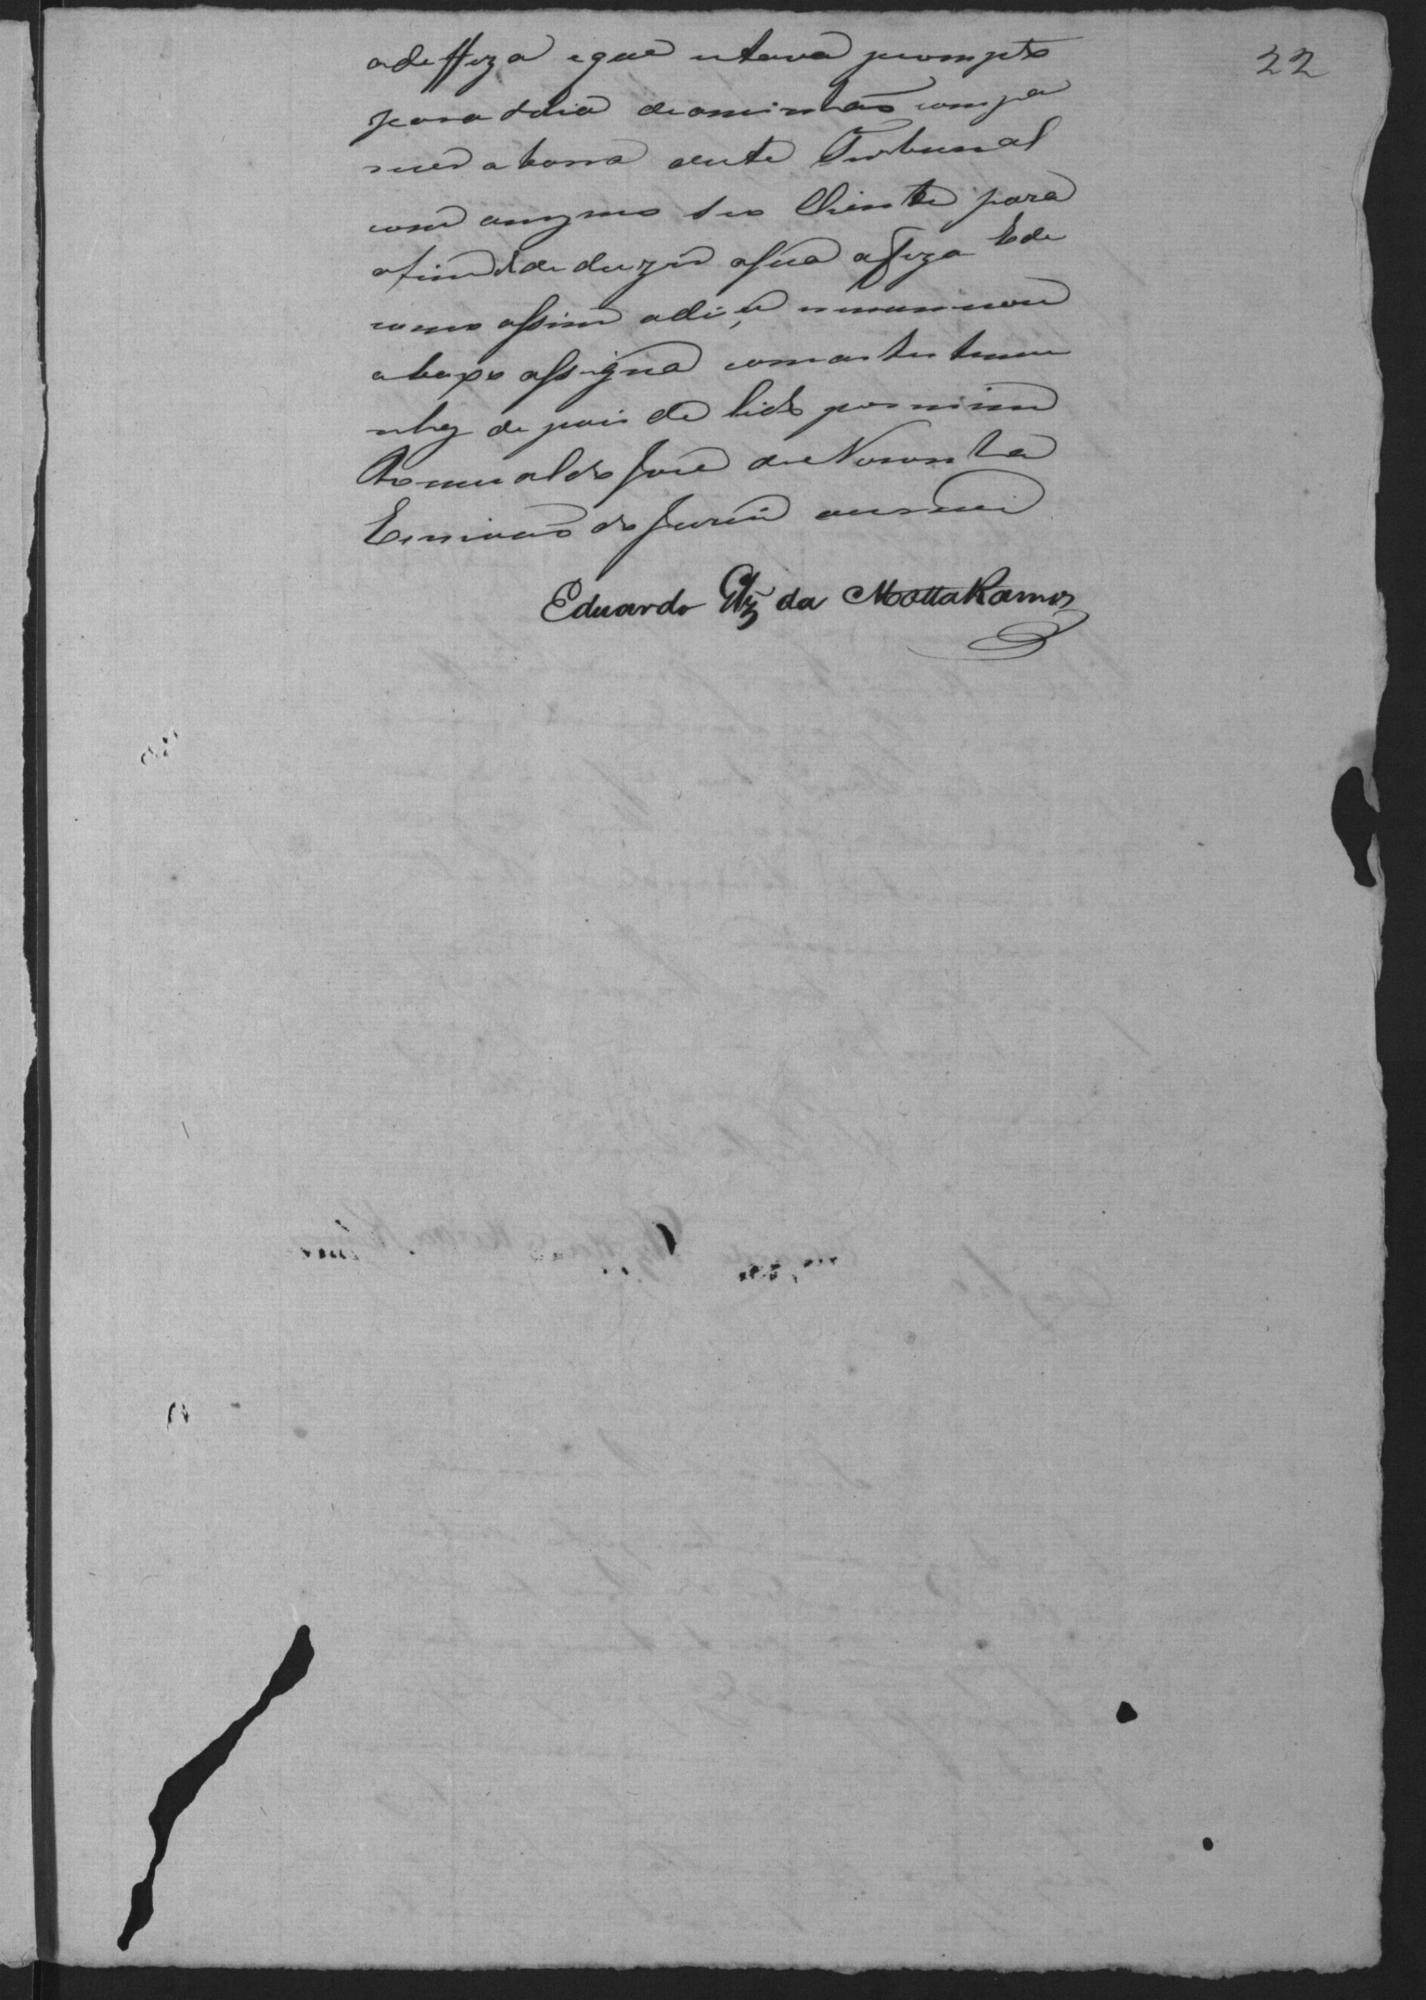 22
adeffeza eque estava prompto
para odia deaminhaõ compa
recer abarra deste Tribunal
com omesmo seo Cliente para
afim de deduzir asua defeza Ede
como assim adice
abaxo assigna comastestemu
nhas de pois de lido pormim
Romualdo José de Noronha
Escrivaõ do Jurii oescrevi
Eduardo Glz da Motta Ramos